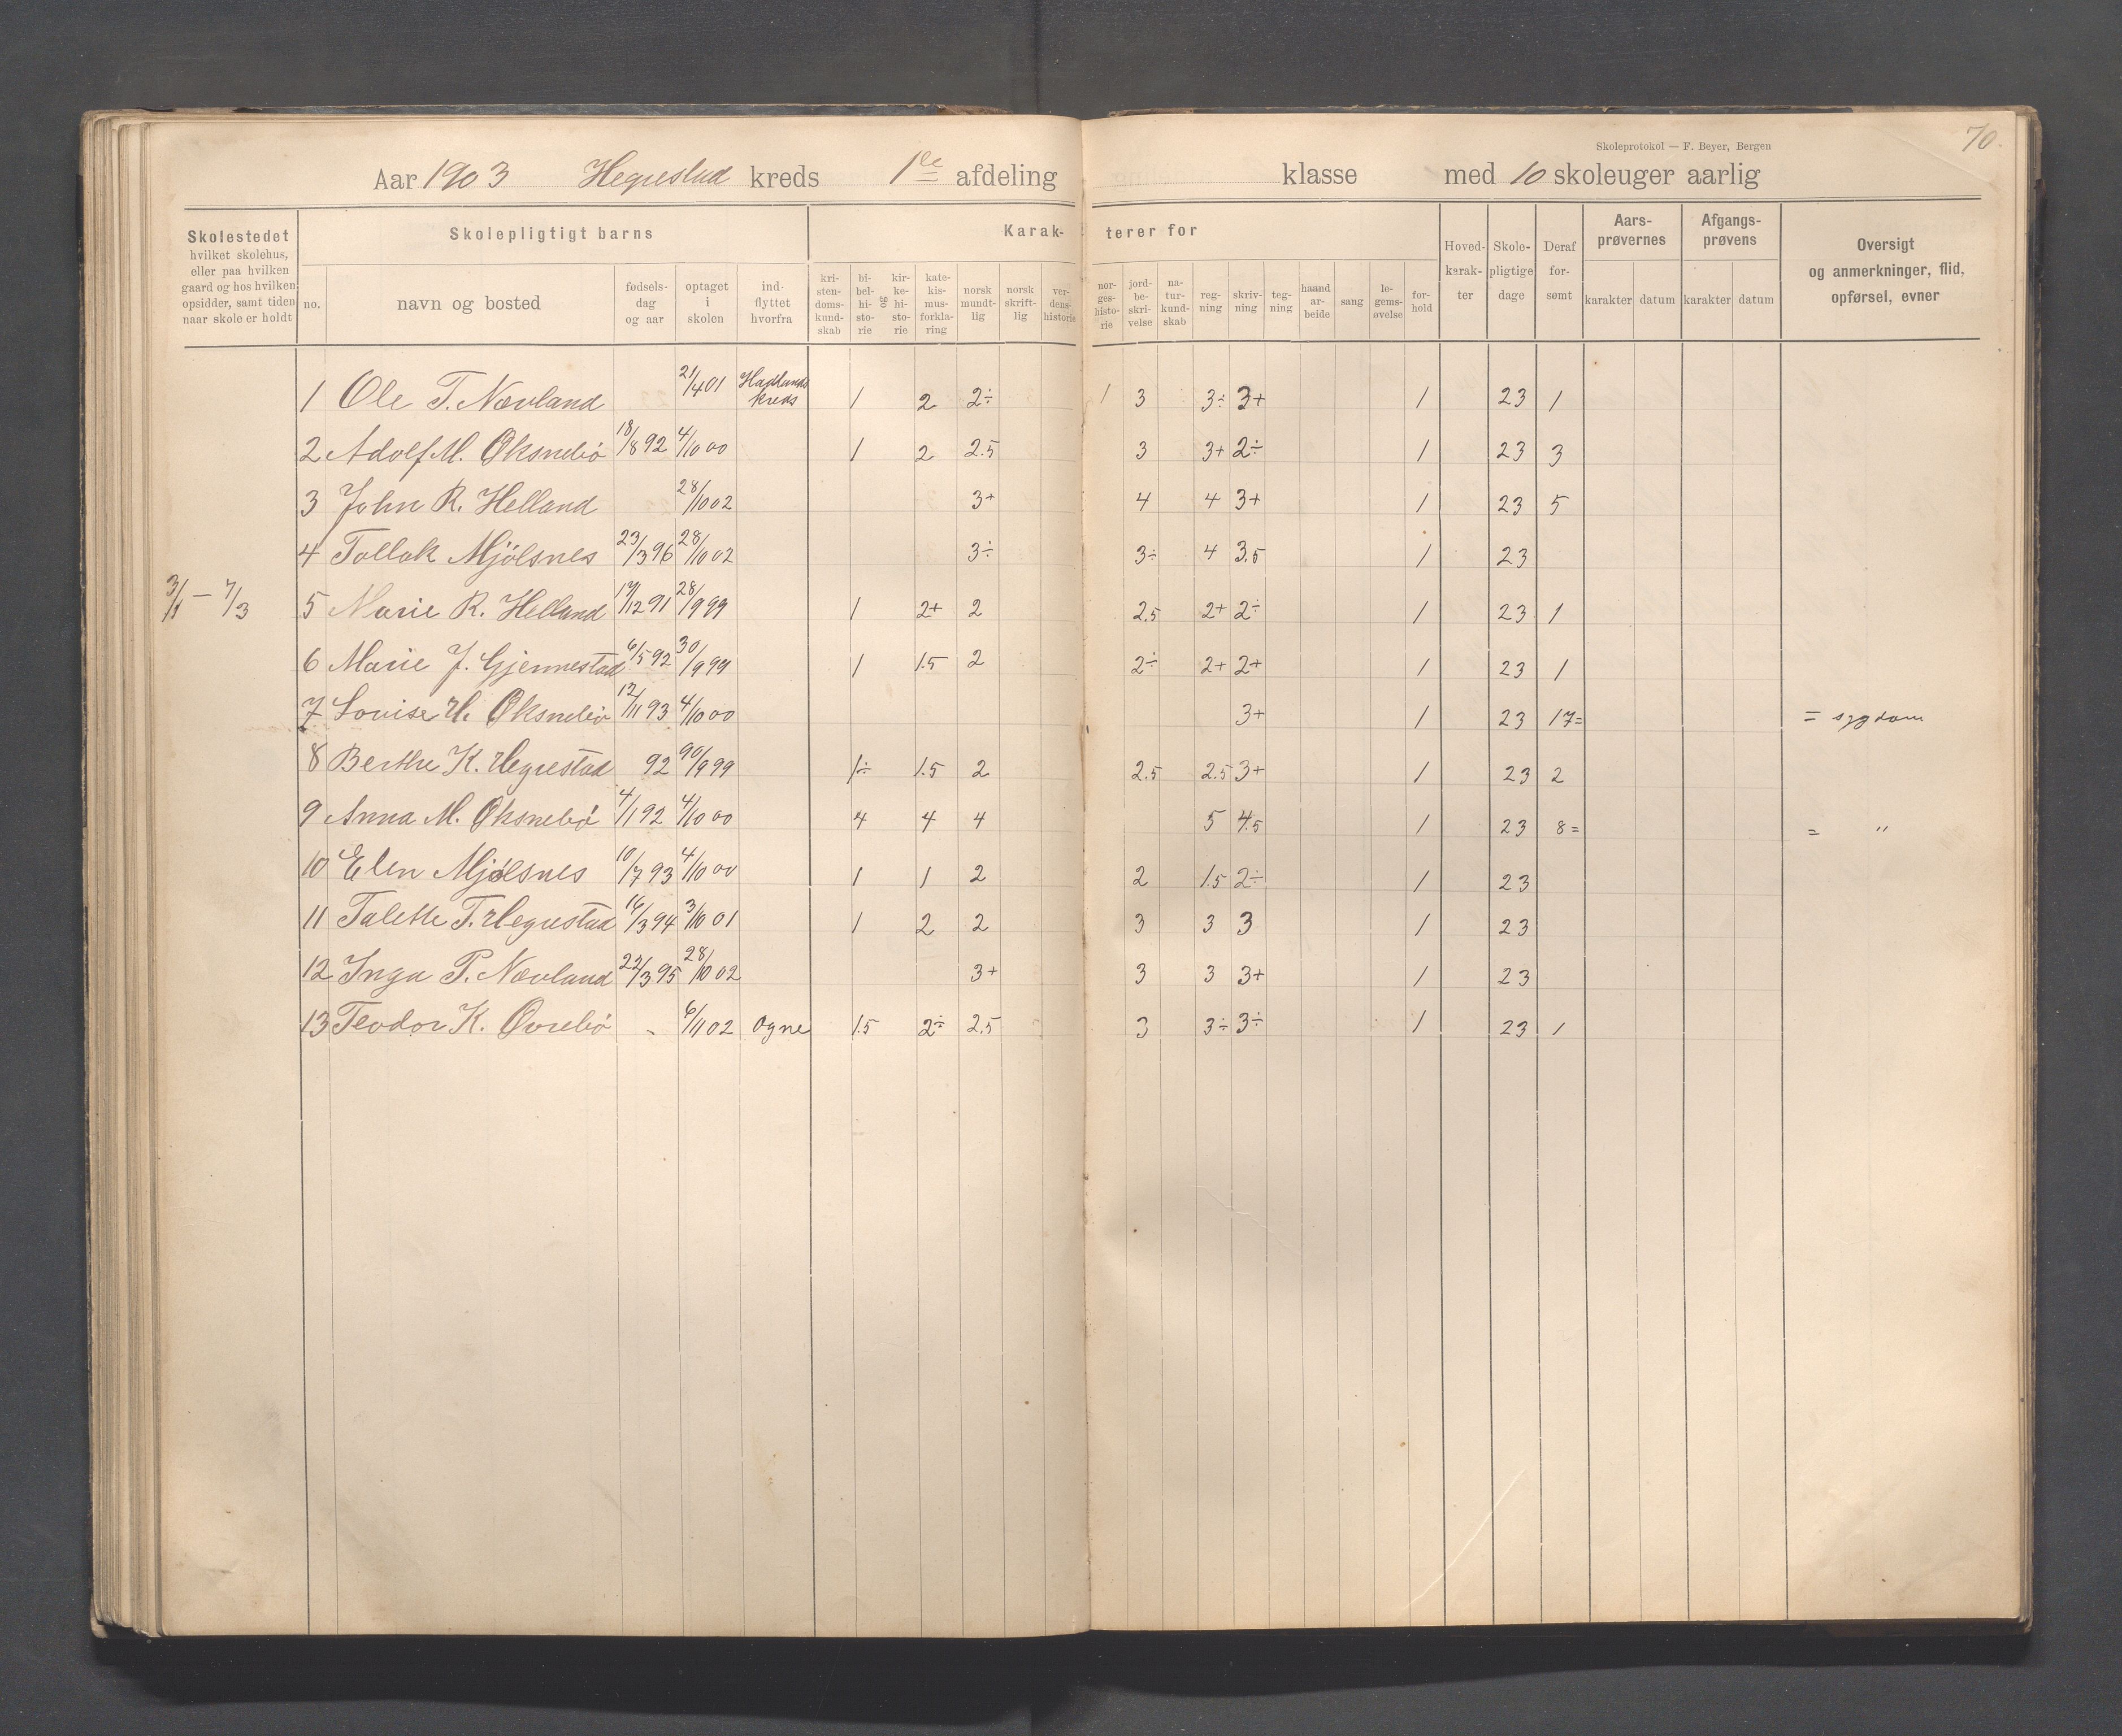 70.
Skoleprotokol — F. Beyer, Bergen
Aar 1903 Hegrestad kreds 1ste afdeling klasse med 10 skoleuger aarlig
Skolestedet
hvilket skolehus,
eller paa hvilken
gaard og hos hvilken
opsidder, samt tiden
naar skole er holdt
Skolepligtigt barns
no.
navn og bosted
fødsels-
dag
og aar
optaget
i
skolen
ind-
flyttet
hvorfra
Karak-
terer for
kri-
sten-
doms-
kund-
skab
bi-
bel-
hi-
sto-
rie
og
kir-
ke-
hi-
sto-
rie
kate-
kis-
mus-
forkla-
ring
norsk
mundt-
lig
norsk
skrift-
lig
ver-
dens-
historie
nor-
ges-
histo-
rie
jord-
be-
skri-
velse
na-
tur-
kund-
skab
reg-
ning
skriv-
ning
teg-
ning
haand
ar-
beide
sang
le-
gems-
øvelse
for-
hold
Hoved-
karak-
ter
Skole-
pligtige
dage
Deraf
for-
sømt
Aars-
prøvernes
karakter datum
Afgangs-
prøvens
karakter datum
Oversigt
og anmerkninger, flid,
opførsel, evner
1 Ole T. Nævland 21/4 01 Hadlands kreds 1 2 2÷ 1 3 3÷ 3+ 1 23 1
2 Adolf M. Øksnebø 18/8 92 4/10 00 1 2 2.5 3 3+ 2÷ 1 23 3
3 John R. Helland 28/10 02 3+ 4 4 3+ 1 23 5
4 Tollak Mjølsnes 23/3 96 28/10 02 3÷ 3÷ 4 3.5 1 23
3/1 — 7/3 5 Marie R. Helland 19/12 91 28/9 99 1 2+ 2 2.5 2+ 2÷ 1 23 1
6 Marie J. Gjennestad 6/5 92 30/9 99 1 1.5 2 2÷ 2+ 2+ 1 23 1
7 Lovise H. Øksnebø 12/11 93 4/10 00 3+ 1 23 17= = sygdom
8 Berthe K. Hegrestad 92 90/9 99 1÷ 1.5 2 2.5 2.5 3+ 1 23 2
9 Anna M. Øksnebø 4/1 92 4/10 00 4 4 4 5 4.5 1 23 8= = "
10 Elen Mjølsnes 10/7 93 4/10 00 1 1 2 2 1.5 2÷ 1 23
11 Talette T. Hegrestad 16/3 94 3/10 01 1 2 2 3 3 3 1 23
12 Inga P. Nævland 22/3 95 28/10 02 3+ 3 3 3+ 1 23
13 Teodor K. Øvrebø - 6/11 02 Ogne 1.5 2÷ 2.5 3 3÷ 3÷ 1 23 1